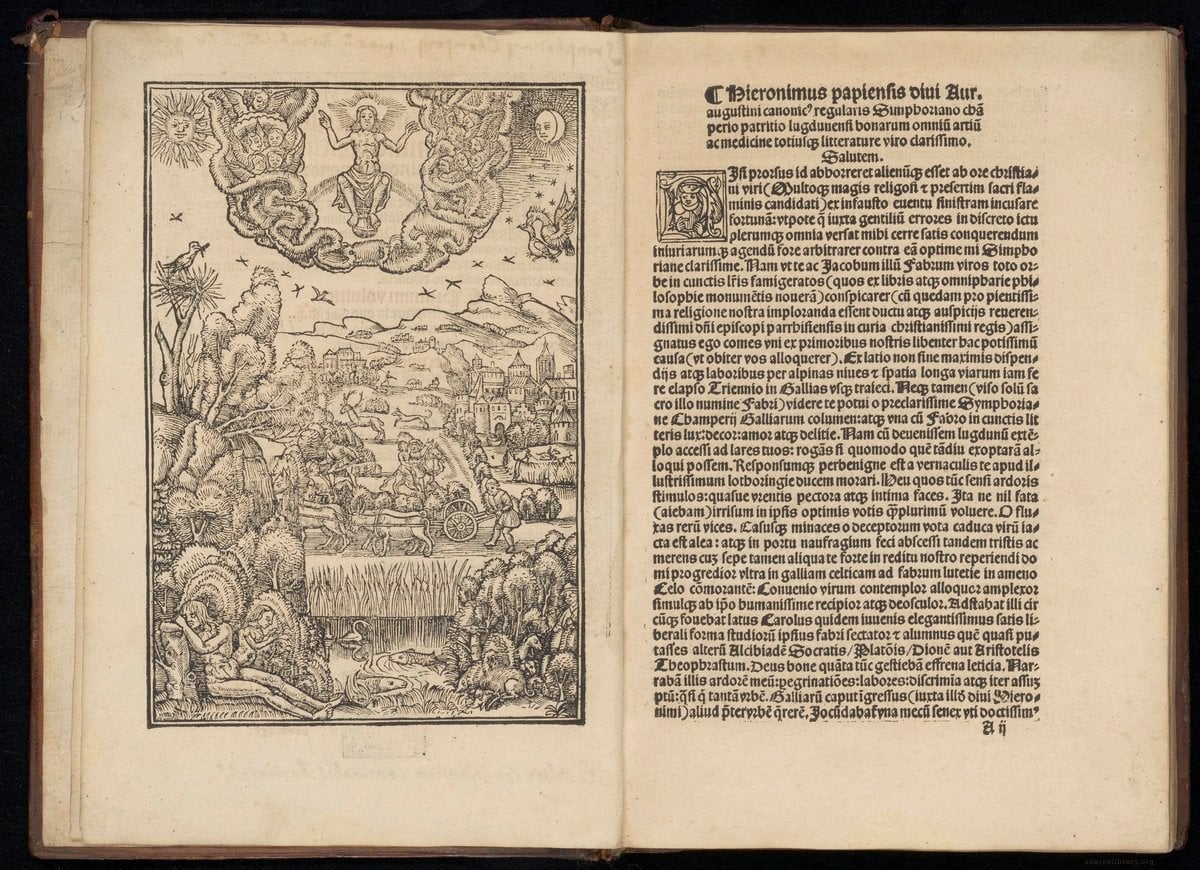 ¶ Hieronimus papiensis divi Aur.
augustini canonicꝰ regularis Simphoriano chã
perio patritio lugdunensi bonarum omniũ artiũ
ac medicine totiusqꝫ litterature viro clarissimo.
Salutem.
NIsi prorsus id abhorreret alienũqꝫ esset ab ore christia⸗
ni viri (Multoqꝫ magis religosi ⁊ presertim sacri fla⸗
minis candidati) ex infausto eventu sinistram incusare
fortunã: vtpote q̃ iuxta gentiliũ errores in discreto ictu
plerumqꝫ omnia versat mihi certe satis conquerendum
iniuriarumqꝫ agendũ fore arbitrarer contra eã optime mi Simpho
riane clarissime. Nam vt te ac Jacobum illũ Fabrum viros toto or⸗
be in cunctis lr̃is famigeratos (quos ex libris atqꝫ omnipharie phi⸗
losophie monumẽtis noverã) conspicarer (cũ quedam pro pientissi⸗
ma religione nostra imploranda essent ductu atqꝫ auspicijs reveren⸗
dissimi dñi episcopi parrhisiensis in curia christianissimi regis) assi⸗
gnatus ego comes vni ex primoribus nostris libenter hac potissimũ
causa (vt obiter vos alloquerer). Ex latio non sine maximis dispen⸗
dijs atqꝫ laboribus per alpinas niues ⁊ spatia longa viarum iam fe
re elapso Triennio in Gallias vsqꝫ traieci. Neqꝫ tamen (viso solũ sa
cro illo numine Fabri) videre te potui o preclarissime Symphoria⸗
ne Champerij Galliarum columen: atqꝫ vna cũ Fabro in cunctis lit
teris lux: decor: amor atqꝫ delitie. Nam cũ devenissem lugdunũ extẽ⸗
plo accessi ad lares tuos: rogãs si quomodo quẽ tãdiu exoptarã al⸗
loqui possem. Responsumqꝫ perbenigne est a vernaculis te apud il⸗
lustrissimum lothoringie ducem morari. Heu quos tũc sensi ardoris
stimulos: quasue vrentis pectora atqꝫ intima faces. Ita ne nil fata
(aiebam) irrisum in ipsis optimis votis q̃plurimũ voluere. O flu⸗
xas rerũ vices. Casusqꝫ minaces o deceptorum vota caduca virũ ia⸗
cta est alea: atqꝫ in portu naufragium feci abscessi tandem tristis ac
merens cuꝫ sepe tamen aliqua te forte in reditu nostro reperiendi do
mi progredior vltra in galliam celticam ad fabrum lutetie in ameno
Celo cõmorantẽ: Convenio virum contemplor alloquor amplexor
simulqꝫ ab ip̃o humanissime recipior atqꝫ deosculor. Adstabat illi cir
cũqꝫ fouebat latus Carolus quidem iuuenis elegantissimus satis li⸗
berali forma studiorũ ipsius fabri sectator ⁊ alumnus quẽ quasi pu⸗
tasses alterũ Alcibiadẽ Socratis/Platõis/Dionẽ aut Aristotelis
Theophrastum. Deus bone quãta tũc gestiebã effrena leticia. Nar⸗
rabã illis ardorẽ meũ: pegrinatiões: labores: discrimĩa atqꝫ iter assũ⸗
ptũ: q̃si q̃ tantã vrbẽ. Galliarũ caput ĩgressus (iuxta illð divi Hiero⸗
nimi) aliud p̃ter vrbẽ q̃rerẽ. Jocũdabat̃ vna mecũ senex vti doctissimꝰ
A ij
sourcelibrary.org